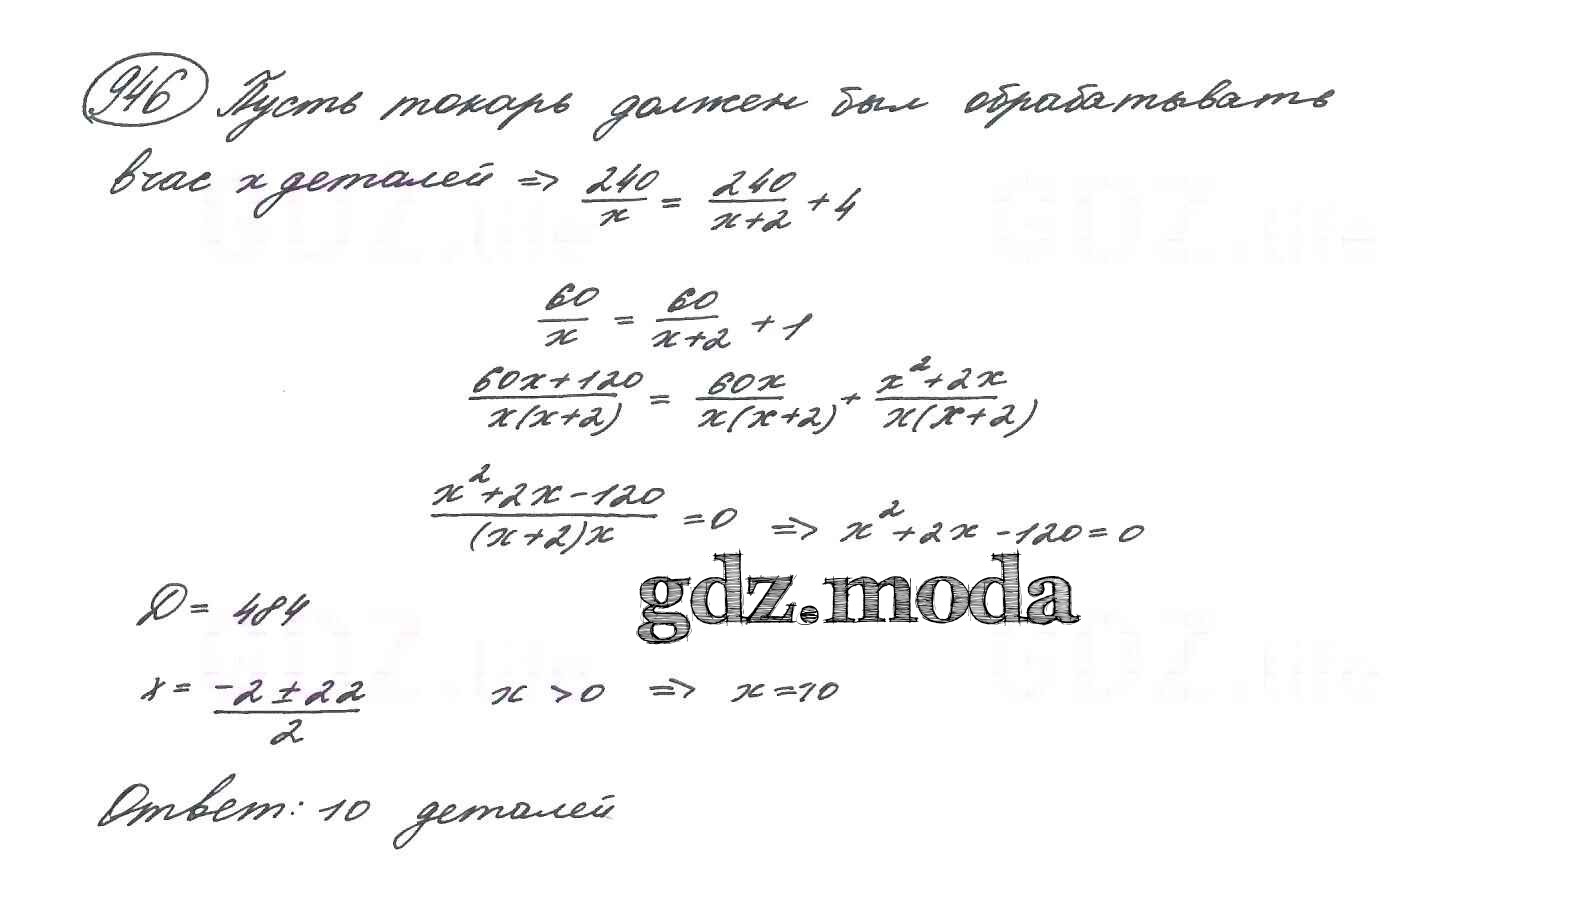 946 Пусть токарь должен был обрабатывать
в час x деталей => 240/x = 240/(x+2) + 4
60/x = 60/(x+2) + 1
(60x+120)/(x(x+2)) = 60x/(x(x+2)) + (x²+2x)/(x(x+2))
(x²+2x-120)/((x+2)x) = 0 => x²+2x-120=0
gdz.moda
D = 484
x = (-2±22)/2 x >0 => x=10
Ответ: 10 деталей